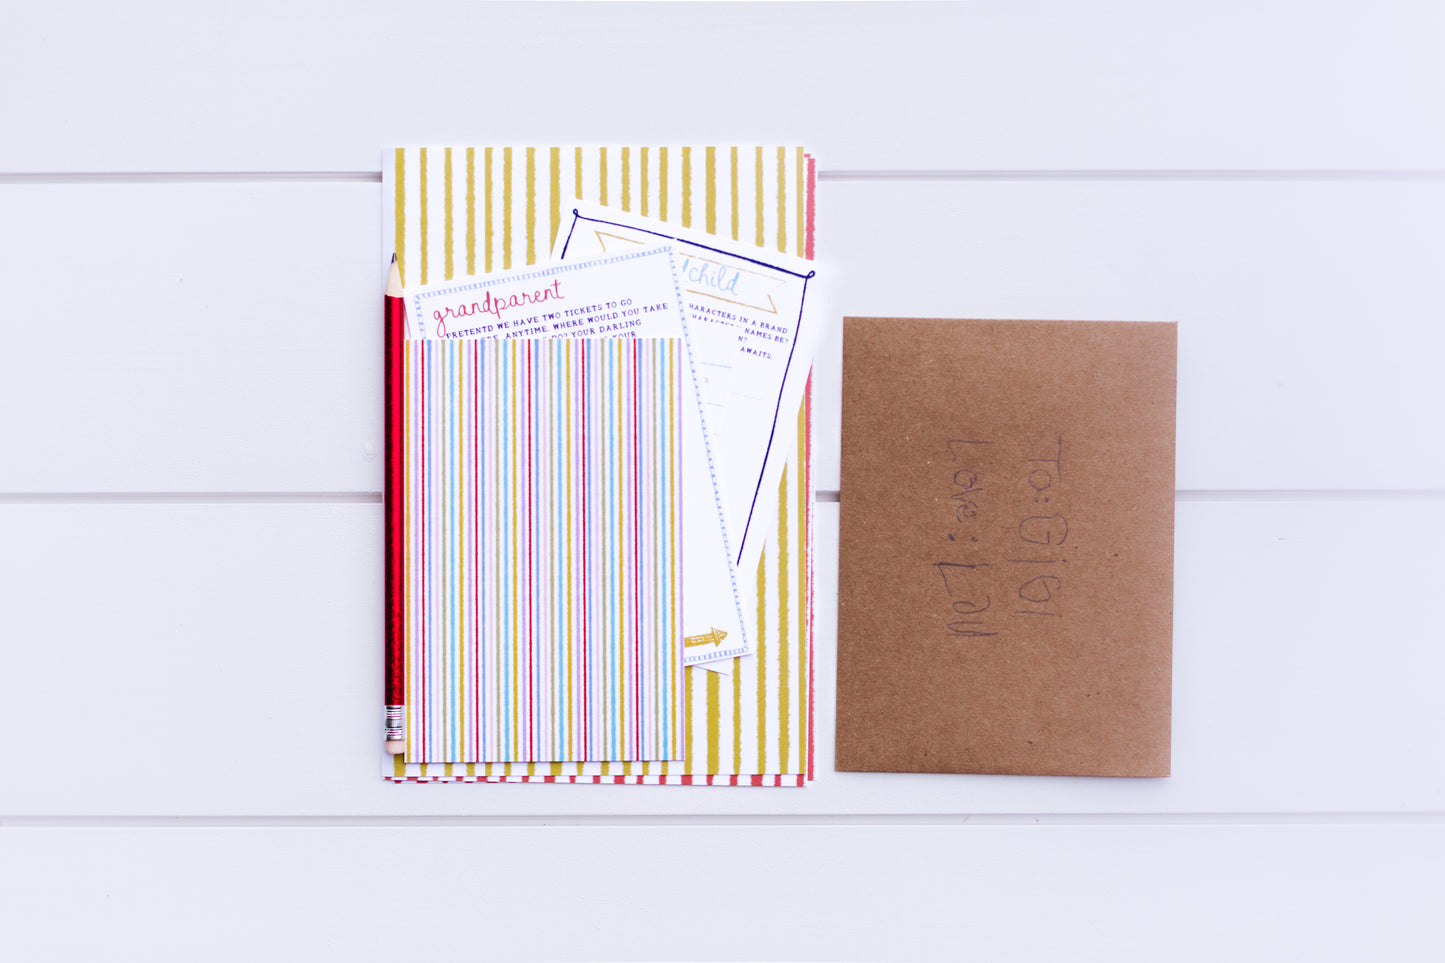 grandparent
PRETENTD WE HAVE TWO TICKETS TO GO
ANYTIME. WHERE WOULD YOU TAKE
DO? YOUR DARLING
YOUR
dchild
HARACTERS IN A BRAND
NAMES BE?
N?
AWAITS.
To: GiGi
Love: Lau